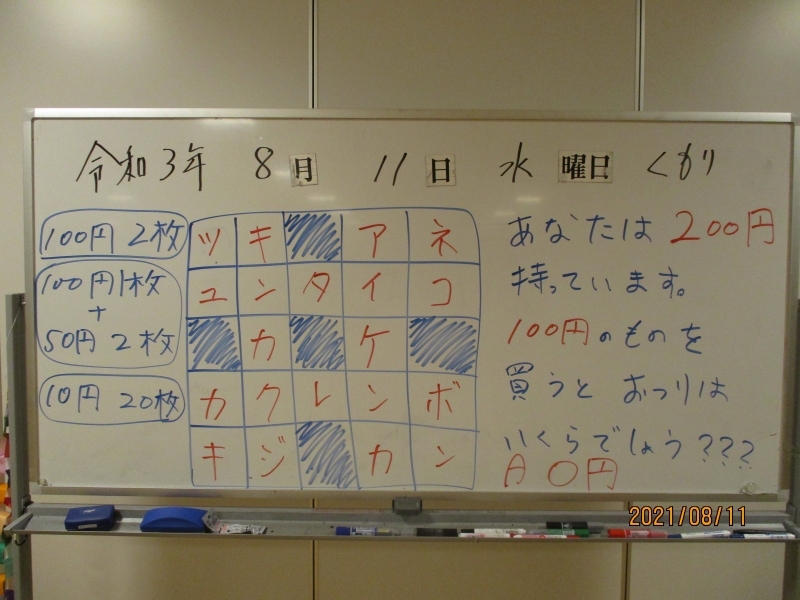 令和3年 8月 11日 水曜日 くもり
100円 2枚
100円1枚
+
50円 2枚
10円 20枚
ツキ アネ
ユンタイコ
カ ケ
カクレンボ
キジ カン
あなたは200円
持っています。
100円のものを
買うと おつりは
いくらでしょう???
A 0円
2021/08/11